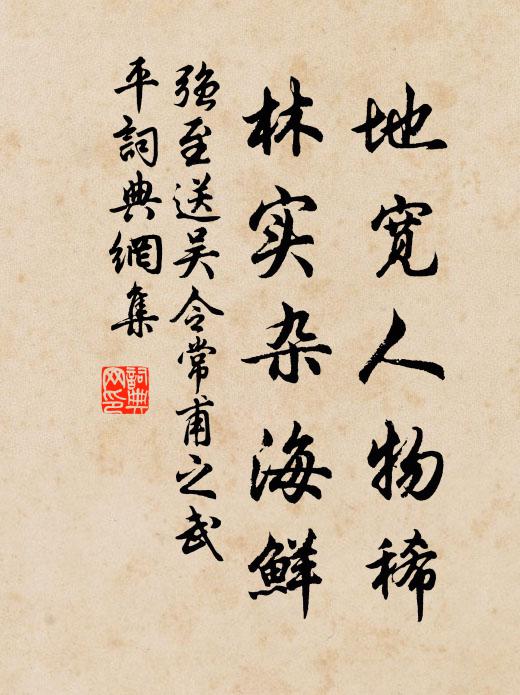 地宽人物稀
林实杂海鲜
强至送吴令常甫之武
平詞典網集
詞典网印